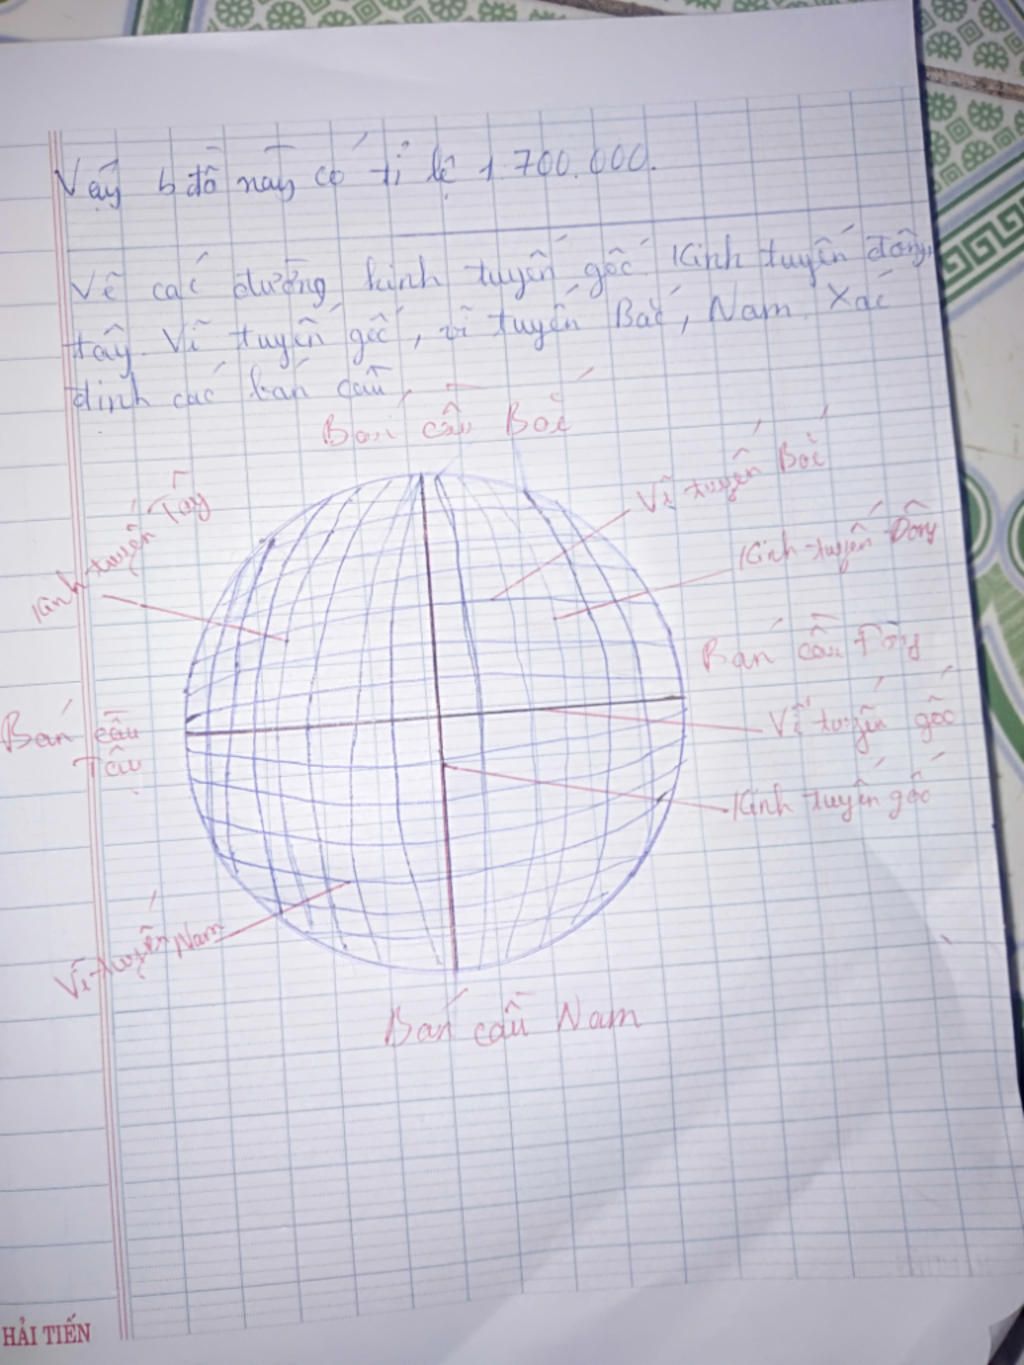 Vậy b đồ này có tỉ lệ 1 700.000.
Vẽ các đường kinh tuyến gốc. Kinh tuyến đông,
tây. Vĩ tuyến gốc, vĩ tuyến Bắc, Nam. Xác
định các bán cầu
Bán cầu Bắc
Kinh tuyến Tây
Vĩ tuyến Bắc
Kinh tuyến Đông
Bán cầu
Bán cầu
Vĩ tuyến gốc
Kinh tuyến gốc
Vĩ tuyến Nam
Bán cầu Nam
HẢI TIẾN